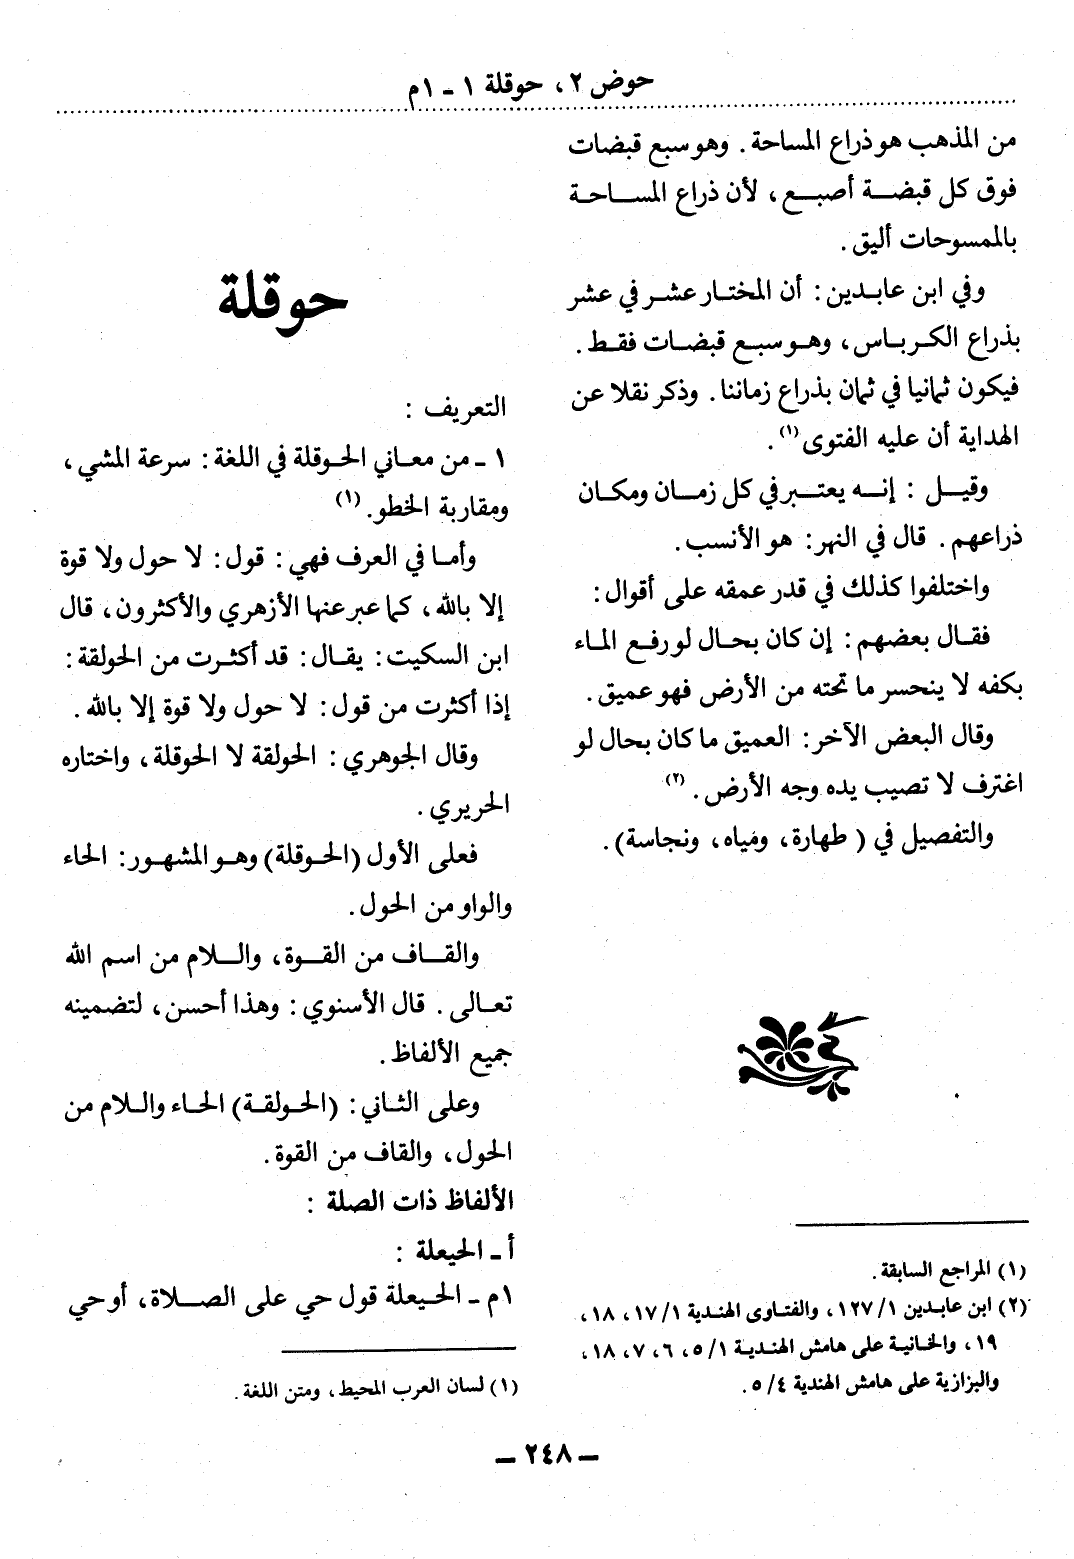 حوض ٢، حوقلة ١ - ١م
من المذهب هو ذراع المساحة. وهو سبع قبضات
فوق كل قبضة أصبع، لأن ذراع المساحة
بالممسوحات أليق.
وفي ابن عابدين: أن المختار عشر في عشر
بذراع الكرباس، وهو سبع قبضات فقط.
فيكون ثمانيا في ثمان بذراع زماننا. وذكر نقلا عن
الهداية أن عليه الفتوى(١).
وقيل : إنه يعتبر في كل زمان ومكان
ذراعهم. قال في النهر: هو الأنسب.
واختلفوا كذلك في قدر عمقه على أقوال:
فقال بعضهم: إن كان بحال لو رفع الماء
بكفه لا ينحسر ما تحته من الأرض فهو عميق.
وقال البعض الآخر: العميق ما كان بحال لو
اغترف لا تصيب يده وجه الأرض.(٢)
والتفصيل في ( طهارة، ومياه، ونجاسة).
(١) المراجع السابقة.
(٢) ابن عابدين ١/ ١٢٧، والفتاوى الهندية ١/ ١٧، ١٨،
١٩، والخانية على هامش الهندية ١/ ٥، ٦، ٧، ١٨،
والبزازية على هامش الهندية ٤/ ٥.
حوقلة
التعريف :
١ - من معاني الحوقلة في اللغة: سرعة المشي،
ومقاربة الخطو.(١)
وأما في العرف فهي: قول: لا حول ولا قوة
إلا بالله، كما عبر عنها الأزهري والأكثرون، قال
ابن السكيت: يقال: قد أكثرت من الحولقة:
إذا أكثرت من قول: لا حول ولا قوة إلا بالله.
وقال الجوهري: الحولقة لا الحوقلة، واختاره
الحريري.
فعلى الأول (الحوقلة) وهو المشهور: الحاء
والواو من الحول.
والقاف من القوة، واللام من اسم الله
تعالى. قال الأسنوي: وهذا أحسن، لتضمينه
جميع الألفاظ.
وعلى الثاني: (الحولقة) الحاء واللام من
الحول، والقاف من القوة.
الألفاظ ذات الصلة :
أ - الحيعلة :
١م - الحيعلة قول حي على الصلاة، أو حي
(١) لسان العرب المحيط، ومتن اللغة.
- ٢٤٨ -